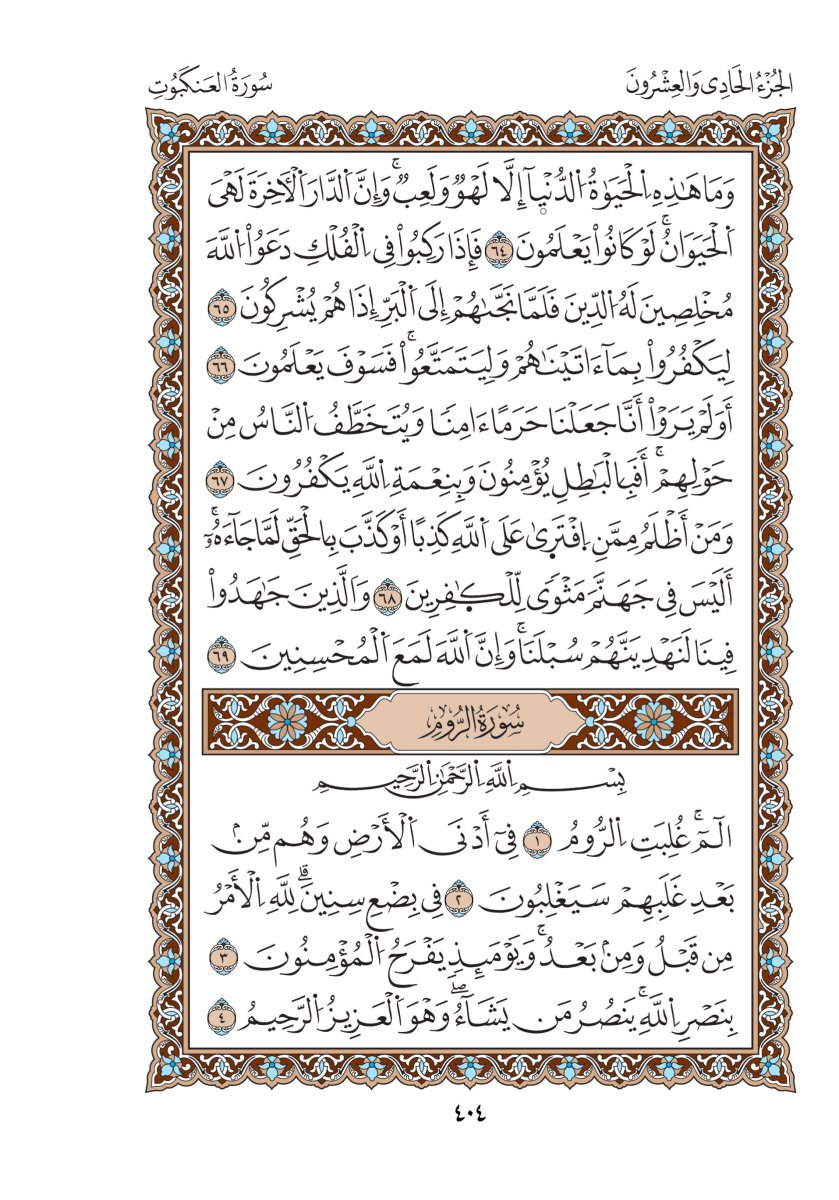 الجُزْءُ الحَادِى وَالعِشْرُونَ
سُورَةُ العَنكَبُوتِ
وَمَا هَٰذِهِ اِ۬لْحَيَوٰةُ اُ۬لدُّنْيَآ إِلَّا لَهْوٌ وَلَعِبٌۚ وَإِنَّ اَ۬لدَّارَ اَ۬لْأٓخِرَةَ لَهْىَ
اَ۬لْحَيَوَانُۚ لَوْ كَانُواْ يَعْلَمُونَ ٦٤ فَإِذَا رَكِبُواْ فِى اِ۬لْفُلْكِ دَعَوُاْ اُ۬للَّهَ
مُخْلِصِينَ لَهُ اُ۬لدِّينَ فَلَمَّا نَجَّىٰهُمْ إِلَى اَ۬لْبَرِّ إِذَا هُمْ يُشْرِكُونَ ٦٥
لِيَكْفُرُواْ بِمَآ ءَاتَيْنَٰهُمْ وَلِيَتَمَتَّعُواْۚ فَسَوْفَ يَعْلَمُونَ ٦٦
أَوَلَمْ يَرَوْاْ أَنَّا جَعَلْنَا حَرَمًا ءَامِنًا وَيُتَخَطَّفُ اُ۬لنَّاسُ مِنْ
حَوْلِهِمْۚ أَفَبِالْبَٰطِلِ يُؤْمِنُونَ وَبِنِعْمَةِ اِ۬للَّهِ يَكْفُرُونَ ٦٧
وَمَنْ أَظْلَمُ مِمَّنِ اِ۪فْتَرَىٰ عَلَى اَ۬للَّهِ كَذِبًا أَوْ كَذَّبَ بِالْحَقِّ لَمَّا جَآءَهُۥٓۚ
أَلَيْسَ فِى جَهَنَّمَ مَثْوًى لِّلْكٰ۪فِرِينَ ٦٨ وَالَّذِينَ جَٰهَدُواْ
فِينَا لَنَهْدِيَنَّهُمْ سُبْلَنَاۚ وَإِنَّ اَ۬للَّهَ لَمَعَ اَ۬لْمُحْسِنِينَ ٦٩
سُورَةُ الرُّومِ
بِسْمِ اِ۬للَّهِ اِ۬لرَّحْمَٰنِ اِ۬لرَّحِيمِ
الٓمٓۚ غُلِبَتِ اِ۬لرُّومُ ١ فِىٓ أَدْنَى اَ۬لْأَرْضِ وَهُم مِّنۢ
بَعْدِ غَلَبِهِمْ سَيَغْلِبُونَ ٢ فِى بِضْعِ سِنِينَۗ لِلَّهِ اِ۬لْأَمْرُ
مِن قَبْلُ وَمِنۢ بَعْدُۚ وَيَوْمَئِذٍ يَفْرَحُ اُ۬لْمُؤْمِنُونَ ٣
بِنَصْرِ اِ۬للَّهِۚ يَنصُرُ مَن يَشَآءُۖ وَهْوَ اَ۬لْعَزِيزُ اُ۬لرَّحِيمُ ٤
٤٠٤